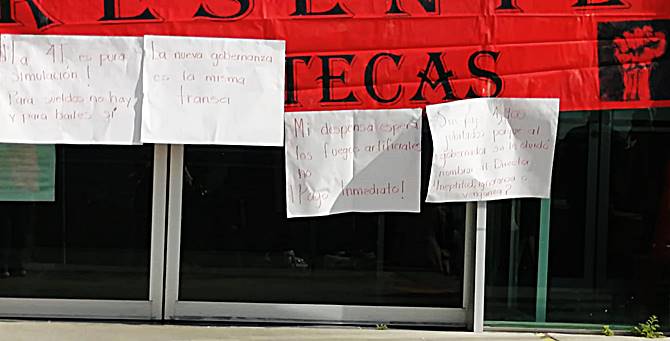 RESENTE
TECAS
La 4T es pura
simulación!
Para sueldos no hay
y para bailes sí
La nueva gobernanza
es la misma
transa!
Mi despensa espera
los fuegos artificiales
no
¡Pago Inmediato!
Sin
jubilados porque al
gobernador se le olvidó
nombrar al Director
ignorancia o
venganza?